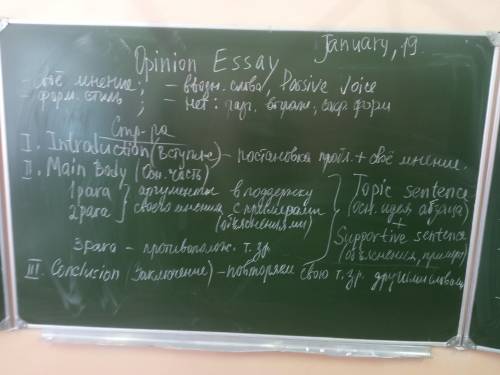 January, 19
Opinion Essay
- своё мнение; - вводн. слова, Passive Voice
- форм. стиль ; - нет: разг. выраж., сокр. форм
Стр-ра
I. Introduction (Вступле) - постановка пробл. + своё мнение.
II. Main Body (Осн. часть)
1 para } аргументы в поддержку
2 para своего мнения с примерами
(объяснениями)
3 para - противополож. т. зр.
Topic sentence
(осн. идея абзаца)
+
Supportive sentence
(объяснения, примеры)
III Conclusion (Заключение) - повторяем свою т. зр. другими словами